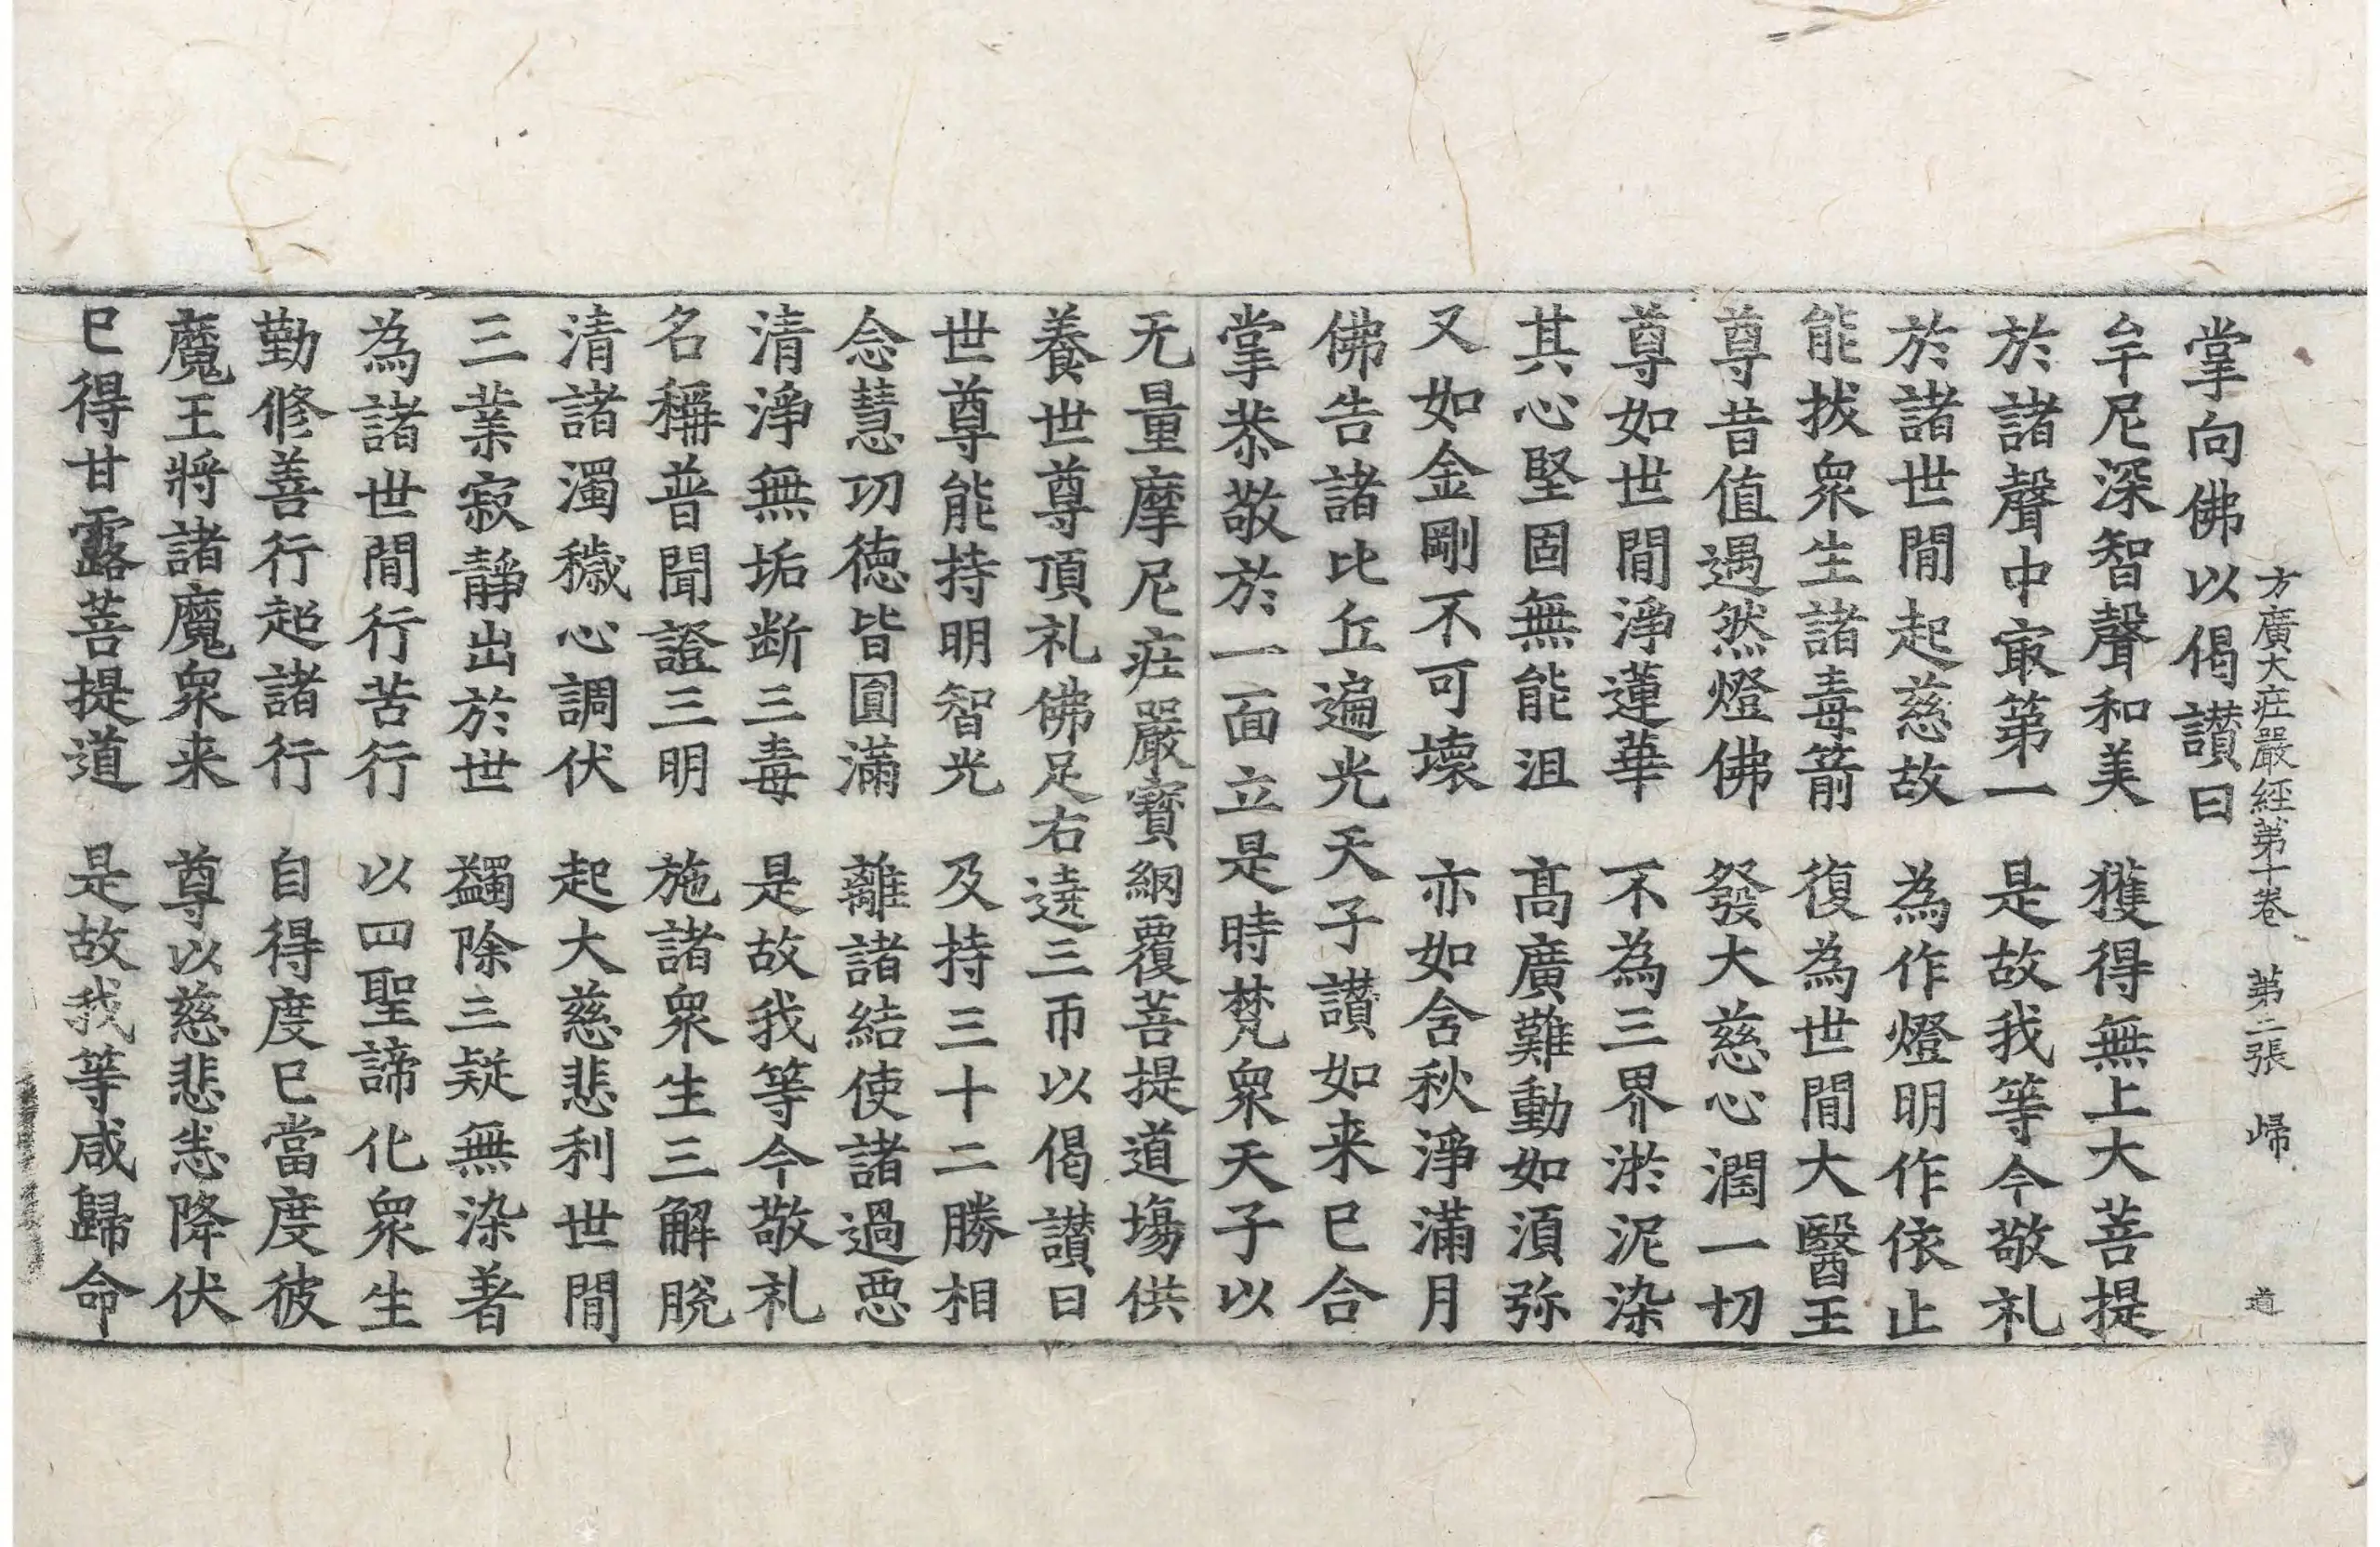 方廣大莊嚴經第十卷 第二張 歸 道
掌向佛以偈讃曰
牟尼深智聲和美 獲得無上大菩提
於諸聲中㝡第一 是故我等今敬礼
於諸世間起慈故 為作燈明作依止
能拔衆生諸毒箭 復為世間大醫王
尊昔值遇然燈佛 發大慈心潤一切
尊如世間淨蓮華 不為三界淤泥染
其心堅固無能沮 髙廣難動如湏弥
又如金剛不可壞 亦如含秋淨滿月
佛告諸比丘遍光天子讃如来已合
掌恭敬於一面立是時梵衆天子以
无量摩尼莊嚴寶網覆菩提道塲供
養世尊頂礼佛足右遶三帀以偈讃曰
世尊能持明智光 及持三十二勝相
念慧功德皆圓滿 離諸結使諸過惡
清淨無垢断三毒 是故我等今敬礼
名稱普聞證三明 施諸衆生三解脫
清諸濁穢心調伏 起大慈悲利世間
三業寂靜出於世 蠲除三疑無染著
為諸世間行苦行 以四聖諦化衆生
勤修善行超諸行 自得度已當度彼
魔王將諸魔衆来 尊以慈悲悉降伏
已得甘露菩提道 是故我等咸歸命